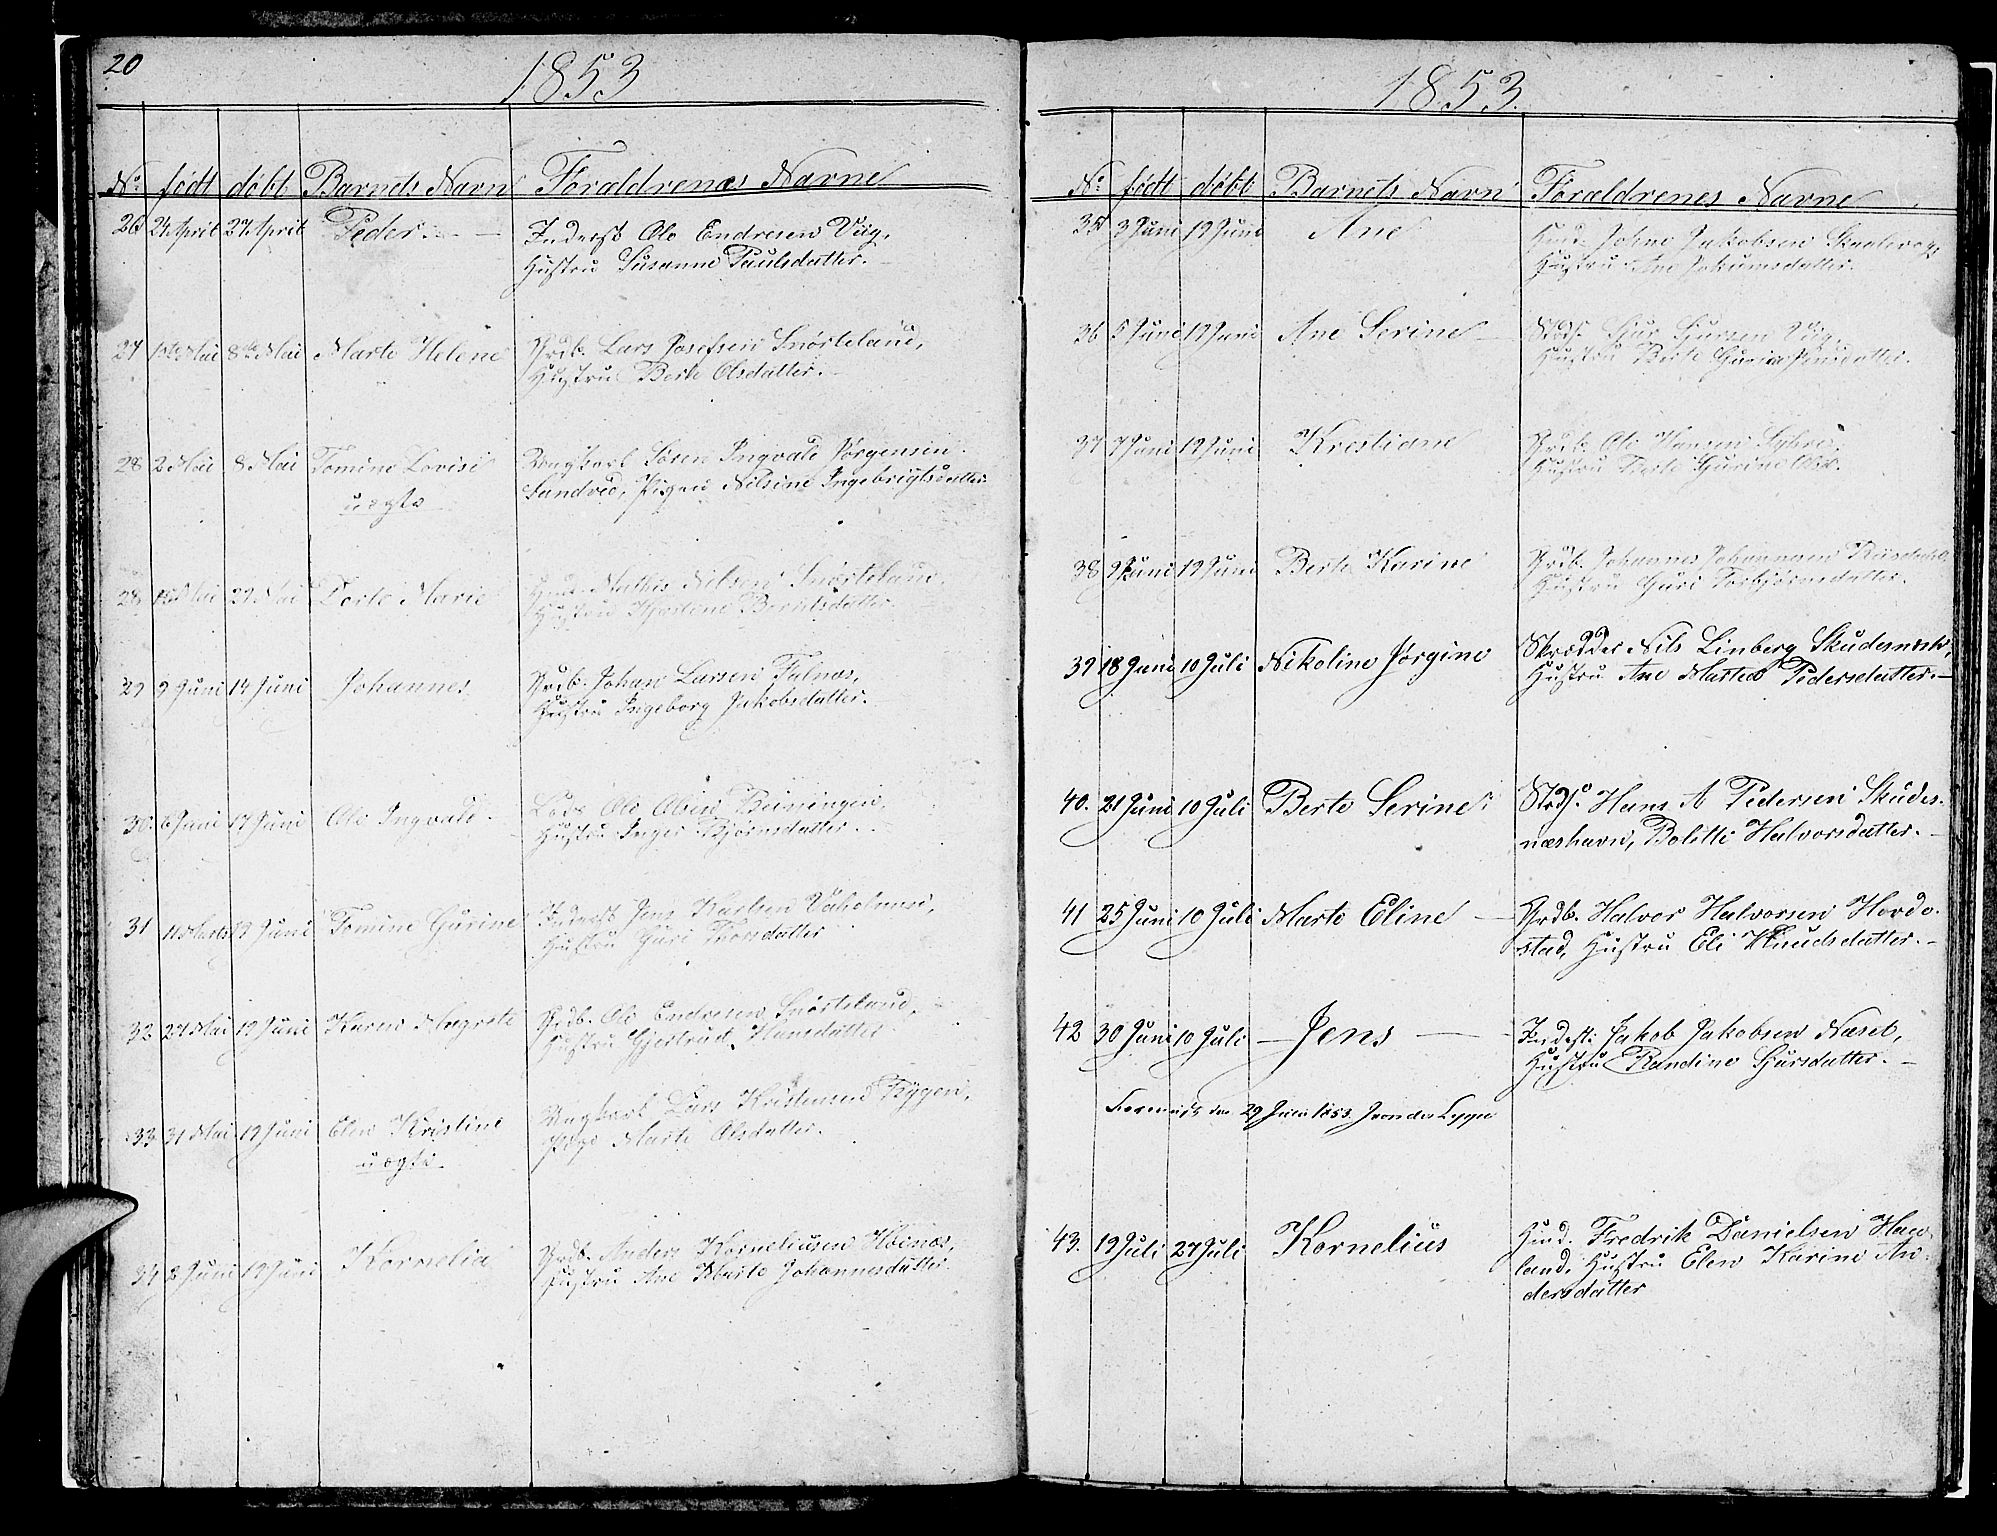 20
1853
No. født døbt Barnets Navn Forældrenes Navne
26 24 April 27 April Peder. Inderst Ole Endresen Viig,
Hustru Susanne Paulsdatter.
27 1ste Mai 8de Mai Marte Helene Grdb. Lars Josefsen Snørteland,
Hustru Berte Olsdatter.
28 2 Mai 8 Mai Tomine Lovise Ungkarl Sören Ingvald Jørgensen
uægte Sandved, Pigen Nilsine Ingebrigtsdatter
28 29 Mai Dorte Marie Huusm. Mathis Nilsen Snørteland,
Hustru Berntsdatter.
29 9 Juni 14 Juni Johannes Grdb. Johan Larsen Falnæs,
Hustru Ingeborg Jakobsdatter.
30 6 Juni 19 Juni Ole Ingvald. Ole
Hustru Inger Bjørnsdatter.
31 11 Marts 19 Juni Tomine Gurine Inderst Jens Karlsen Vaholmen,
Hustru Guri Thorsdatter
32 27 Mai 19 Juni Karen Margrete Grdb. Ole Endresen Snørteland,
Hustru Gjertrud Hansdatter
33 31 Mai 19 Juni Elen Kristine Ungkarl Lars Kristensen Rygen,
uægte Pige Marte Olsdatter.
34 2 Juni 19 Juni Kornelia Grdb. Anders Korneliusen Høinæs,
Hustru Ane Marte Johannesdatter
1853.
No. født døbt Barnets Navn Forældrenes Navne
35 3 Juni 19 Juni Ane Johne Jakobsen Skaalevog,
Hustru Ane Jokumsdatter.
36 5 Juni 19 Juni Ane Serine Sjur Sjursen Viig,
Hustru Berte
37 7 Juni 19 Juni Krestiane Grdb. Ole Hansen Syhre,
Hustru Berte Gurine Olsd.
38 9 Juni 19 Juni Berte Karine Grdb. Johannes Johannesen
Hustru Guri Torbjørnsdatter.
39 18 Juni 10 Juli Nikoline Jørgine Skrædder Nils Linberg Skudesnæsh,
Hustru Ane Martea Pedersdatter.
40. 21 Juni 10 Juli Berte Serine Strds. Hans A Pedersen Skudes-
næshavn, Bolette Halvorsdatter.
41 25 Juni 10 Juli Marte Eline Grdb. Halvor Halvorsen Hovde-
stad, Hustru Eli Knudsdatter.
42 30 Juni 10 Juli Jens Indest. Jakob Jakobsen Næset,
Hustru Randine Sjursdatter.
29 Juli 1853.
43. 19 Juli 27 Juli Kornelius Huusm. Fredrik Danielsen Haa-
land, Hustru Elen Karine An-
dersdatter